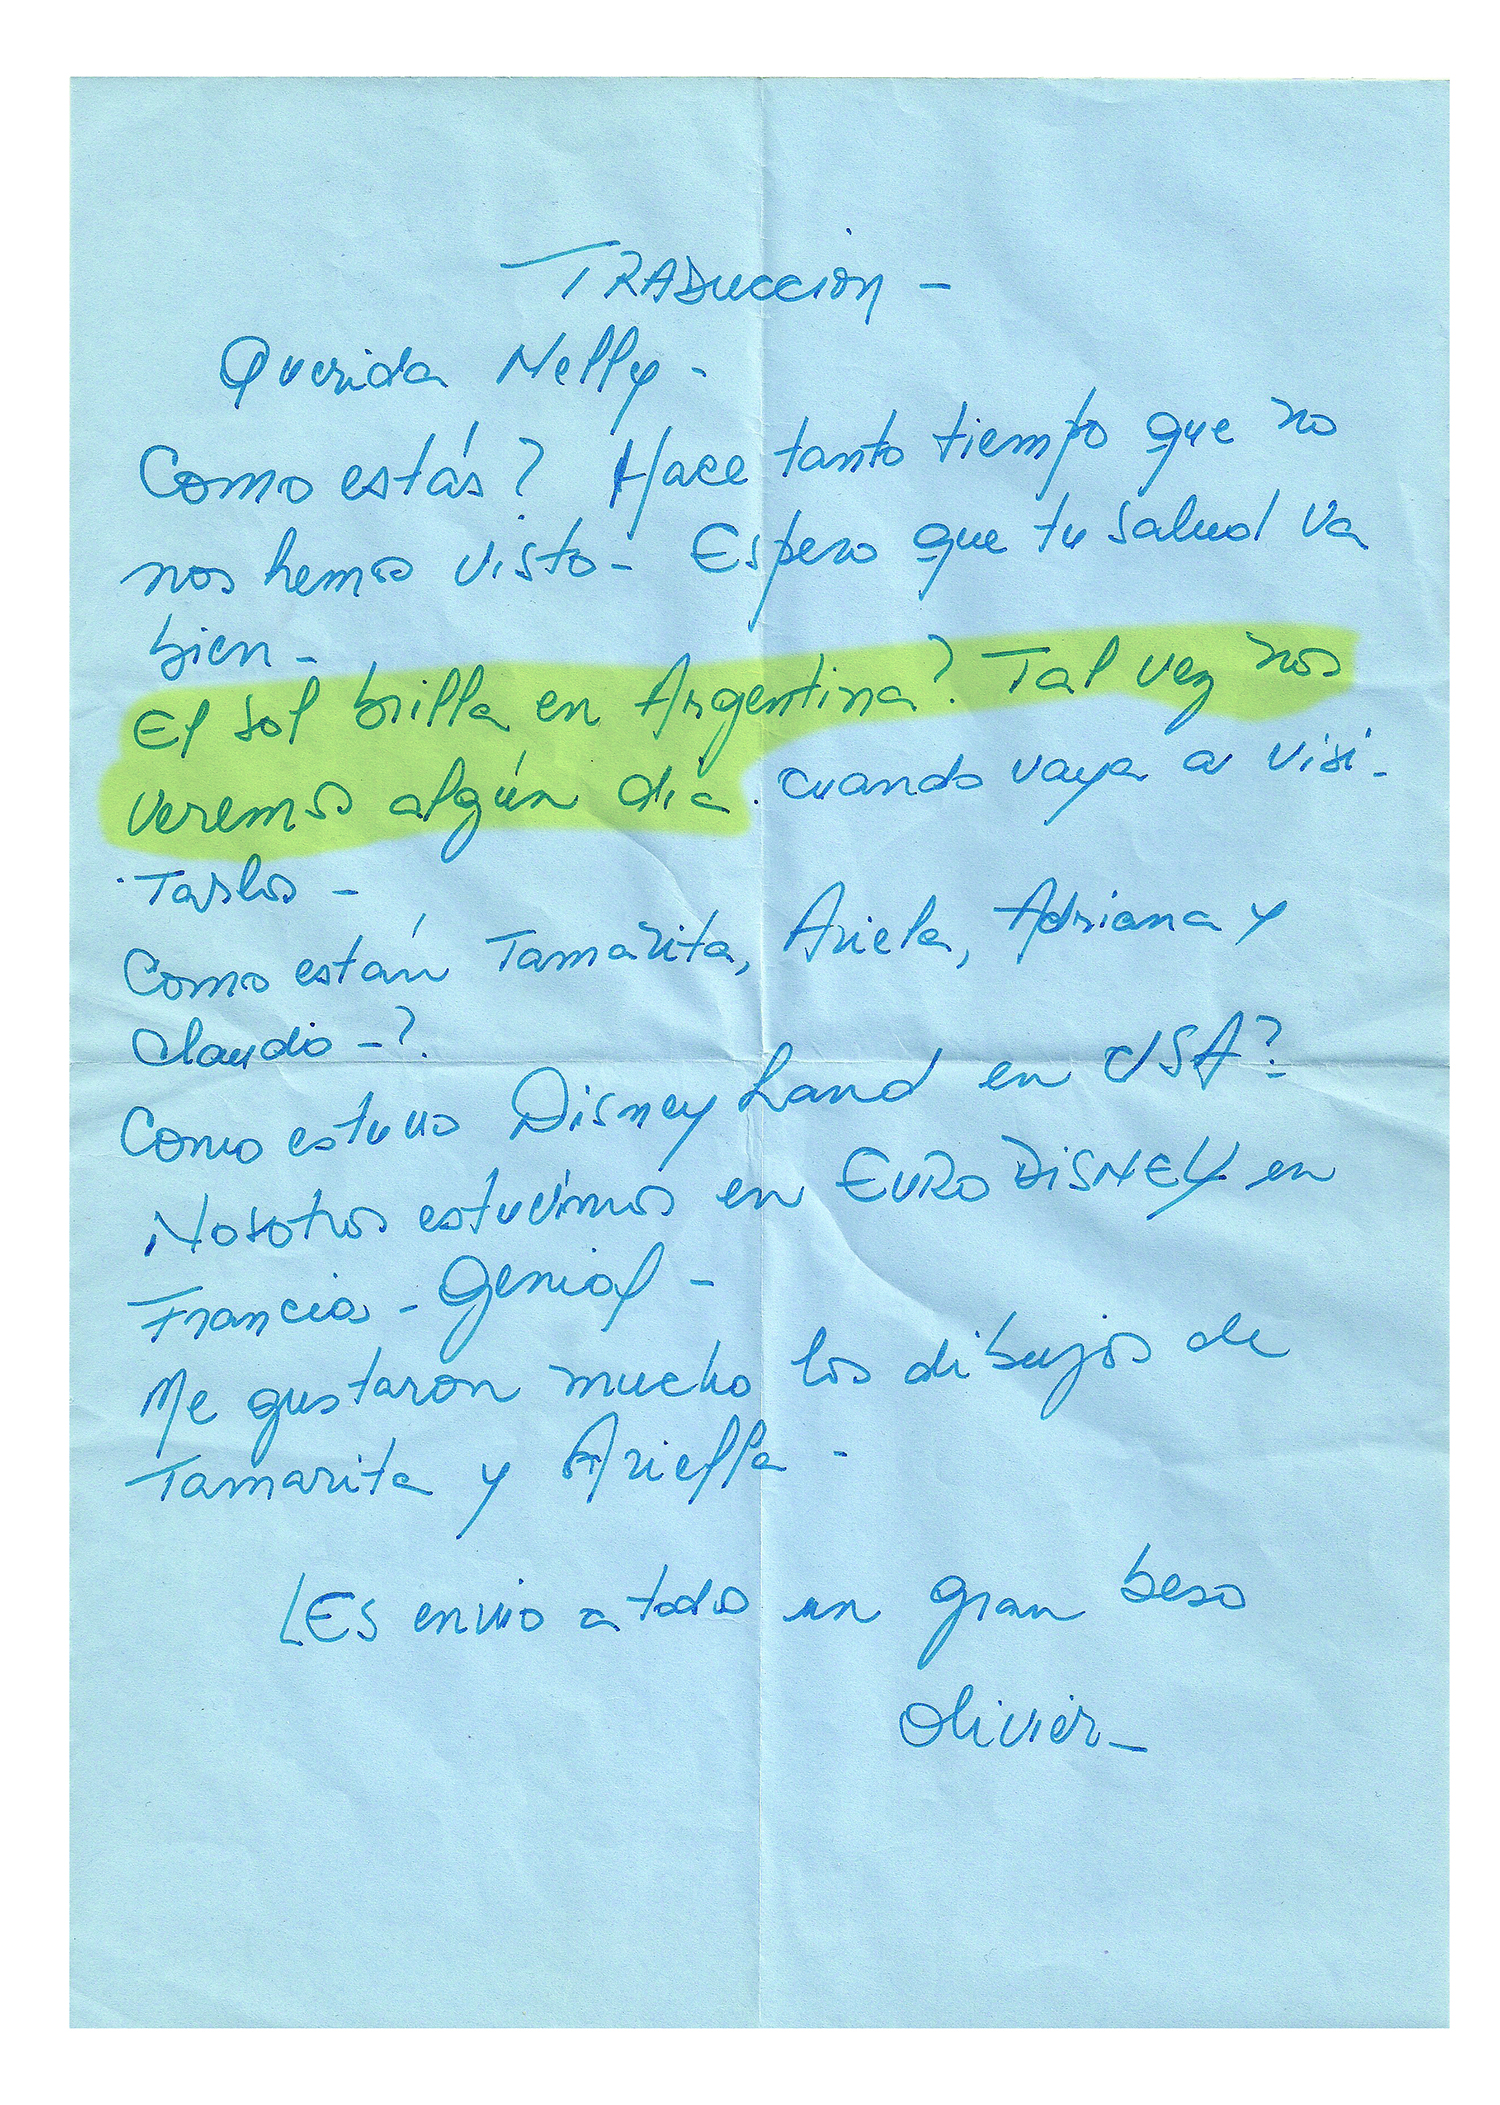 TRADUCCION -
Querida Nelly -
Como estás? Hace tanto tiempo que no
nos hemos visto - Espero que tu salud va
bien -
El sol brilla en Argentina? Tal vez nos
veremos algún día. cuando vaya a visi-
tarlos -
Como están Tamarita, Ariela, Adriana y
Claudio -?.
Como estuvo Disney Land en USA?
Nosotros estuvimos en EURO DISNEY en
Francia - Genial -
Me gustaron mucho los dibujos de
Tamarita y Ariella -
LES envio a todos un gran beso
Olivier -